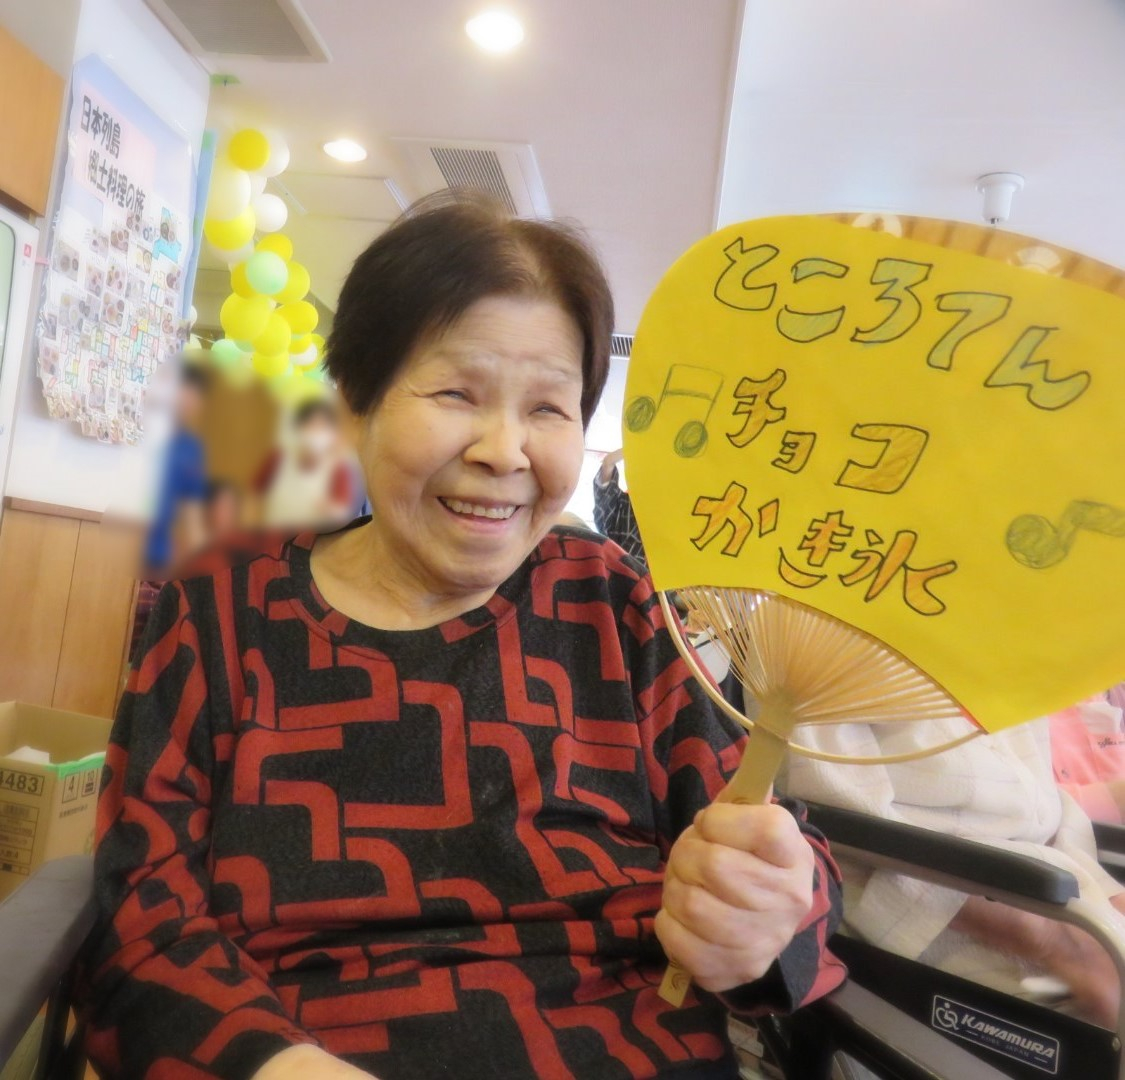 日本列島
郷土料理の旅
ところてん
チョコ
かき氷
4483
4
KAWAMURA